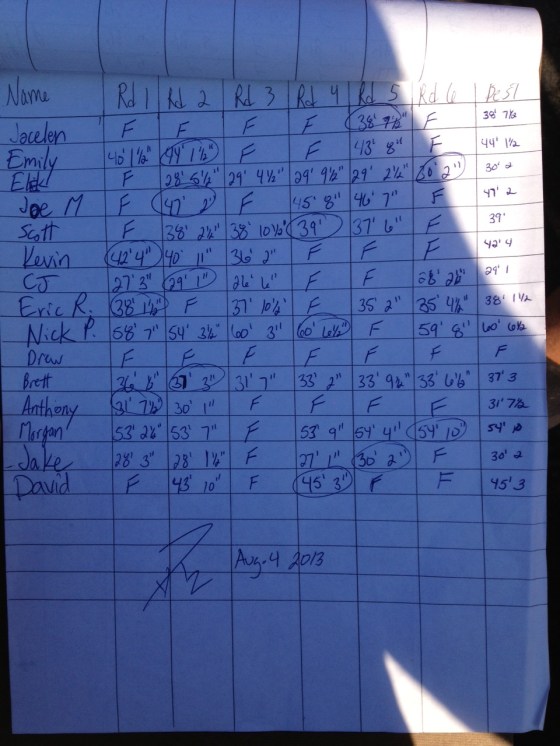 Name Rd 1 Rd 2 Rd 3 Rd 4 Rd 5 Rd 6 Best
Jocelen F F F F 38' 7½" F 38' 7½
Emily 40' 1½" 44' 1½" F F 43' 8" F 44' 1½
F 28' 5½" 29' 4½" 29' 9½" 29' 2½" 30' 2" 30' 2
Joe M F 47' 2" F 45' 8" 46' 7" F 47' 2
Scott F 38' 2½" 38' 10½" 39' 37' 6" F 39'
Kevin 42' 4" 40' 11" 36' 2" F F F 42' 4
CJ 27' 3" 29' 1" 26' 6" F F 29' 1
Eric R. 38' 1½" F 37' 10½" F 35' 2" 35' 4½" 38' 1½
Nick P. 58' 7" 54' 3½" 60' 3" 60' 6½" F 59' 8" 60' 6½
Drew F F F F F F F
Brett 37' 3" 31' 7" 33' 2" 33' 9½" 33' 6½" 37' 3
Anthony 31' 7½" 30' 1" F F F F 31' 7½
Morgan 53' 2½" 53' 7" F 53' 9" 54' 4" 54' 10" 54'
Jake 28' 3" 28' 1½" F 27' 1" 30' 2" F 30' 2
David F 43' 10" F 45' 3" F F 45' 3
Aug. 4 2013